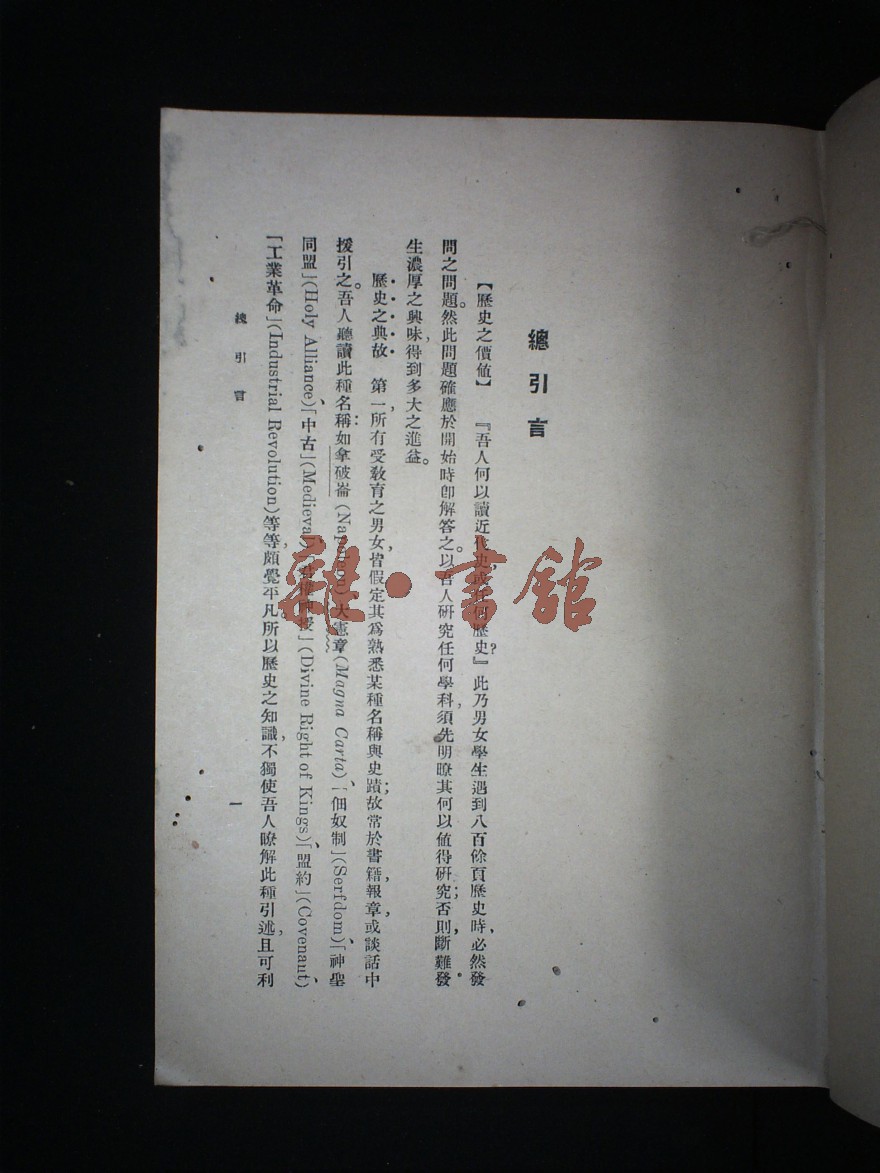 總引言
【歷史之價値】 『吾人何以讀近代史，或任何歷史？』此乃男女學生遇到八百餘頁歷史時，必然發
問之問題。然此問題確應於開始時卽解答之。以吾人硏究任何學科，須先明瞭其何以値得硏究；否則，斷難發
生濃厚之興味，得到多大之進益。
歷史之典故 第一，所有受敎育之男女，皆假定其爲熟悉某種名稱與史蹟；故常於書籍，報章，或談話中
援引之。吾人聽讀此種名稱：如拿破崙(Napoleon)大憲章(Magna Carta)、「佃奴制」(Serfdom)、「神聖
同盟」(Holy Alliance)、「中古」(Medieval)、授」(Divine Right of Kings)、「盟約」(Covenant)、
「工業革命」(Industrial Revolution)等等，頗覺平凡。所以歷史之知識，不獨使吾人瞭解此種引述，且可利
總引言
一
雜·書館